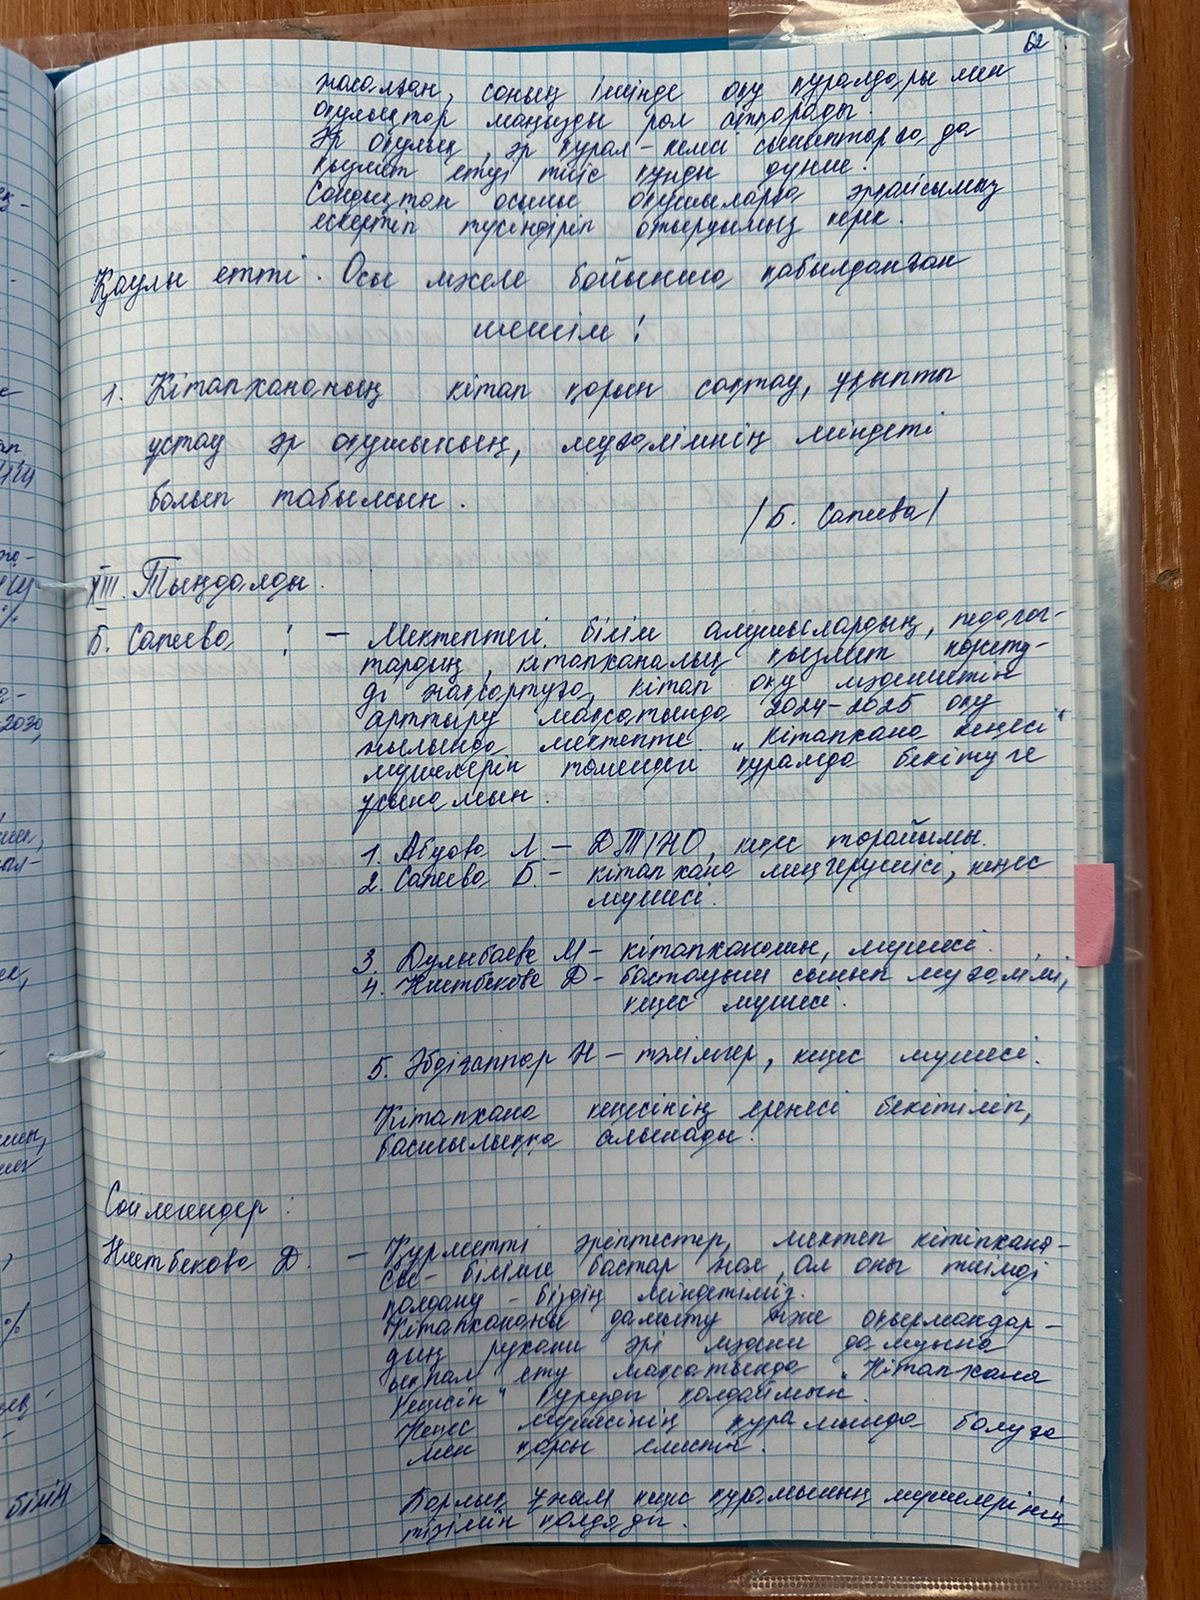 62
жасалған, соның ішінде оқу құралдары мен
оқулықтар маңызды рол атқарады.
Әр оқулық, әр құрал - келесі сыныптарға да
қызмет етуі тиіс құнды дүние.
Сондықтан осыны оқушыларға әрдайымыз
ескертіп түсіндіріп отыруымыз керек.
Қаулы етті. Осы мәселе бойынша қабылданған
шешім:
1. Кітапхананың кітап қорын сақтау, ұқыпты
ұстау әр оқушының, мұғалімнің міндеті
болып табылсын.
/Б. Сапиева/
XIII. Тыңдалды.
Б. Сапиева : – Мектептегі білім алушылардың, педагог-
тардың, кітапханалық қызмет көрсету-
ді жақсартуға, кітап оқу мәдениетін
арттыру мақсатында 2024-2025 оқу
жылында мектепте "Кітапхана кеңесі"
мүшелерін төмендегі құрамда бекітуге
ұсынамын.
1. Абуова Л. – ДТІЖО, кеңес төрайымы.
2. Сапиева Б. – кітапхана меңгерушісі, кеңес
мүшесі.
3. Дулыбаева М – кітапханашы, мүшесі.
4. Ниетбекова Д – бастауыш сынып мұғалімі,
кеңес мүшесі.
5. Әбдіғаппар Н – тәлімгер, кеңес мүшесі.
Кітапхана кеңесінің ережесі бекітіліп,
басшылыққа алынады.
Сөйлегендер:
Ниетбекова Д. – Құрметті әріптестер, мектеп кітапхана-
сы – білімге бастар жол, ал оны тиімді
қолдану – біздің міндетіміз.
Кітапхананы дамыту және оқырмандар-
дың рухани әрі мәдени дамуына
ықпал ету мақсатында "Кітапхана
кеңесін" құруды қолдаймын.
Кеңес мүшесінің құрамында болуға
мен қарсы емеспін.
Барлық ұжым кеңес құрамының мүшелерінің
тізімін қолдады.